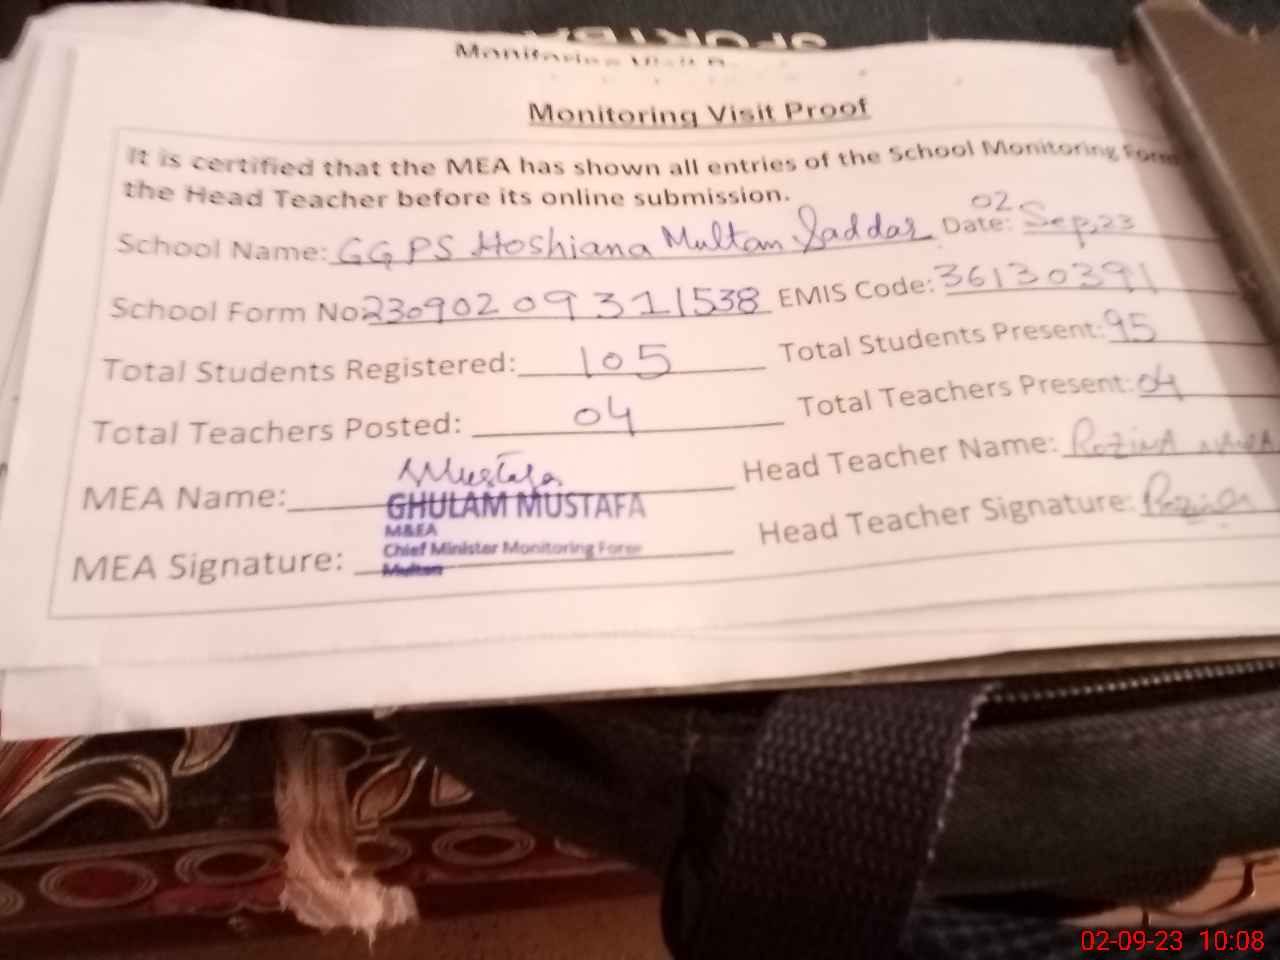 Monitoring Visit Proof
It is certified that the MEA has shown all entries of the School Monitoring Form
the Head Teacher before its online submission.
School Name: GGPS Hoshiana Multan Saddar Date: 02 Sep, 23
School Form No 23090209311538 EMIS Code: 36130391
Total Students Registered: 105 Total Students Present: 95
Total Teachers Posted: 04 Total Teachers Present: 04
MEA Name: Mustafa Head Teacher Name: Rozina
GHULAM MUSTAFA
M&EA
Chief Minister Monitoring Force
Multan
MEA Signature: Head Teacher Signature: Rozina
02-09-23 10:08